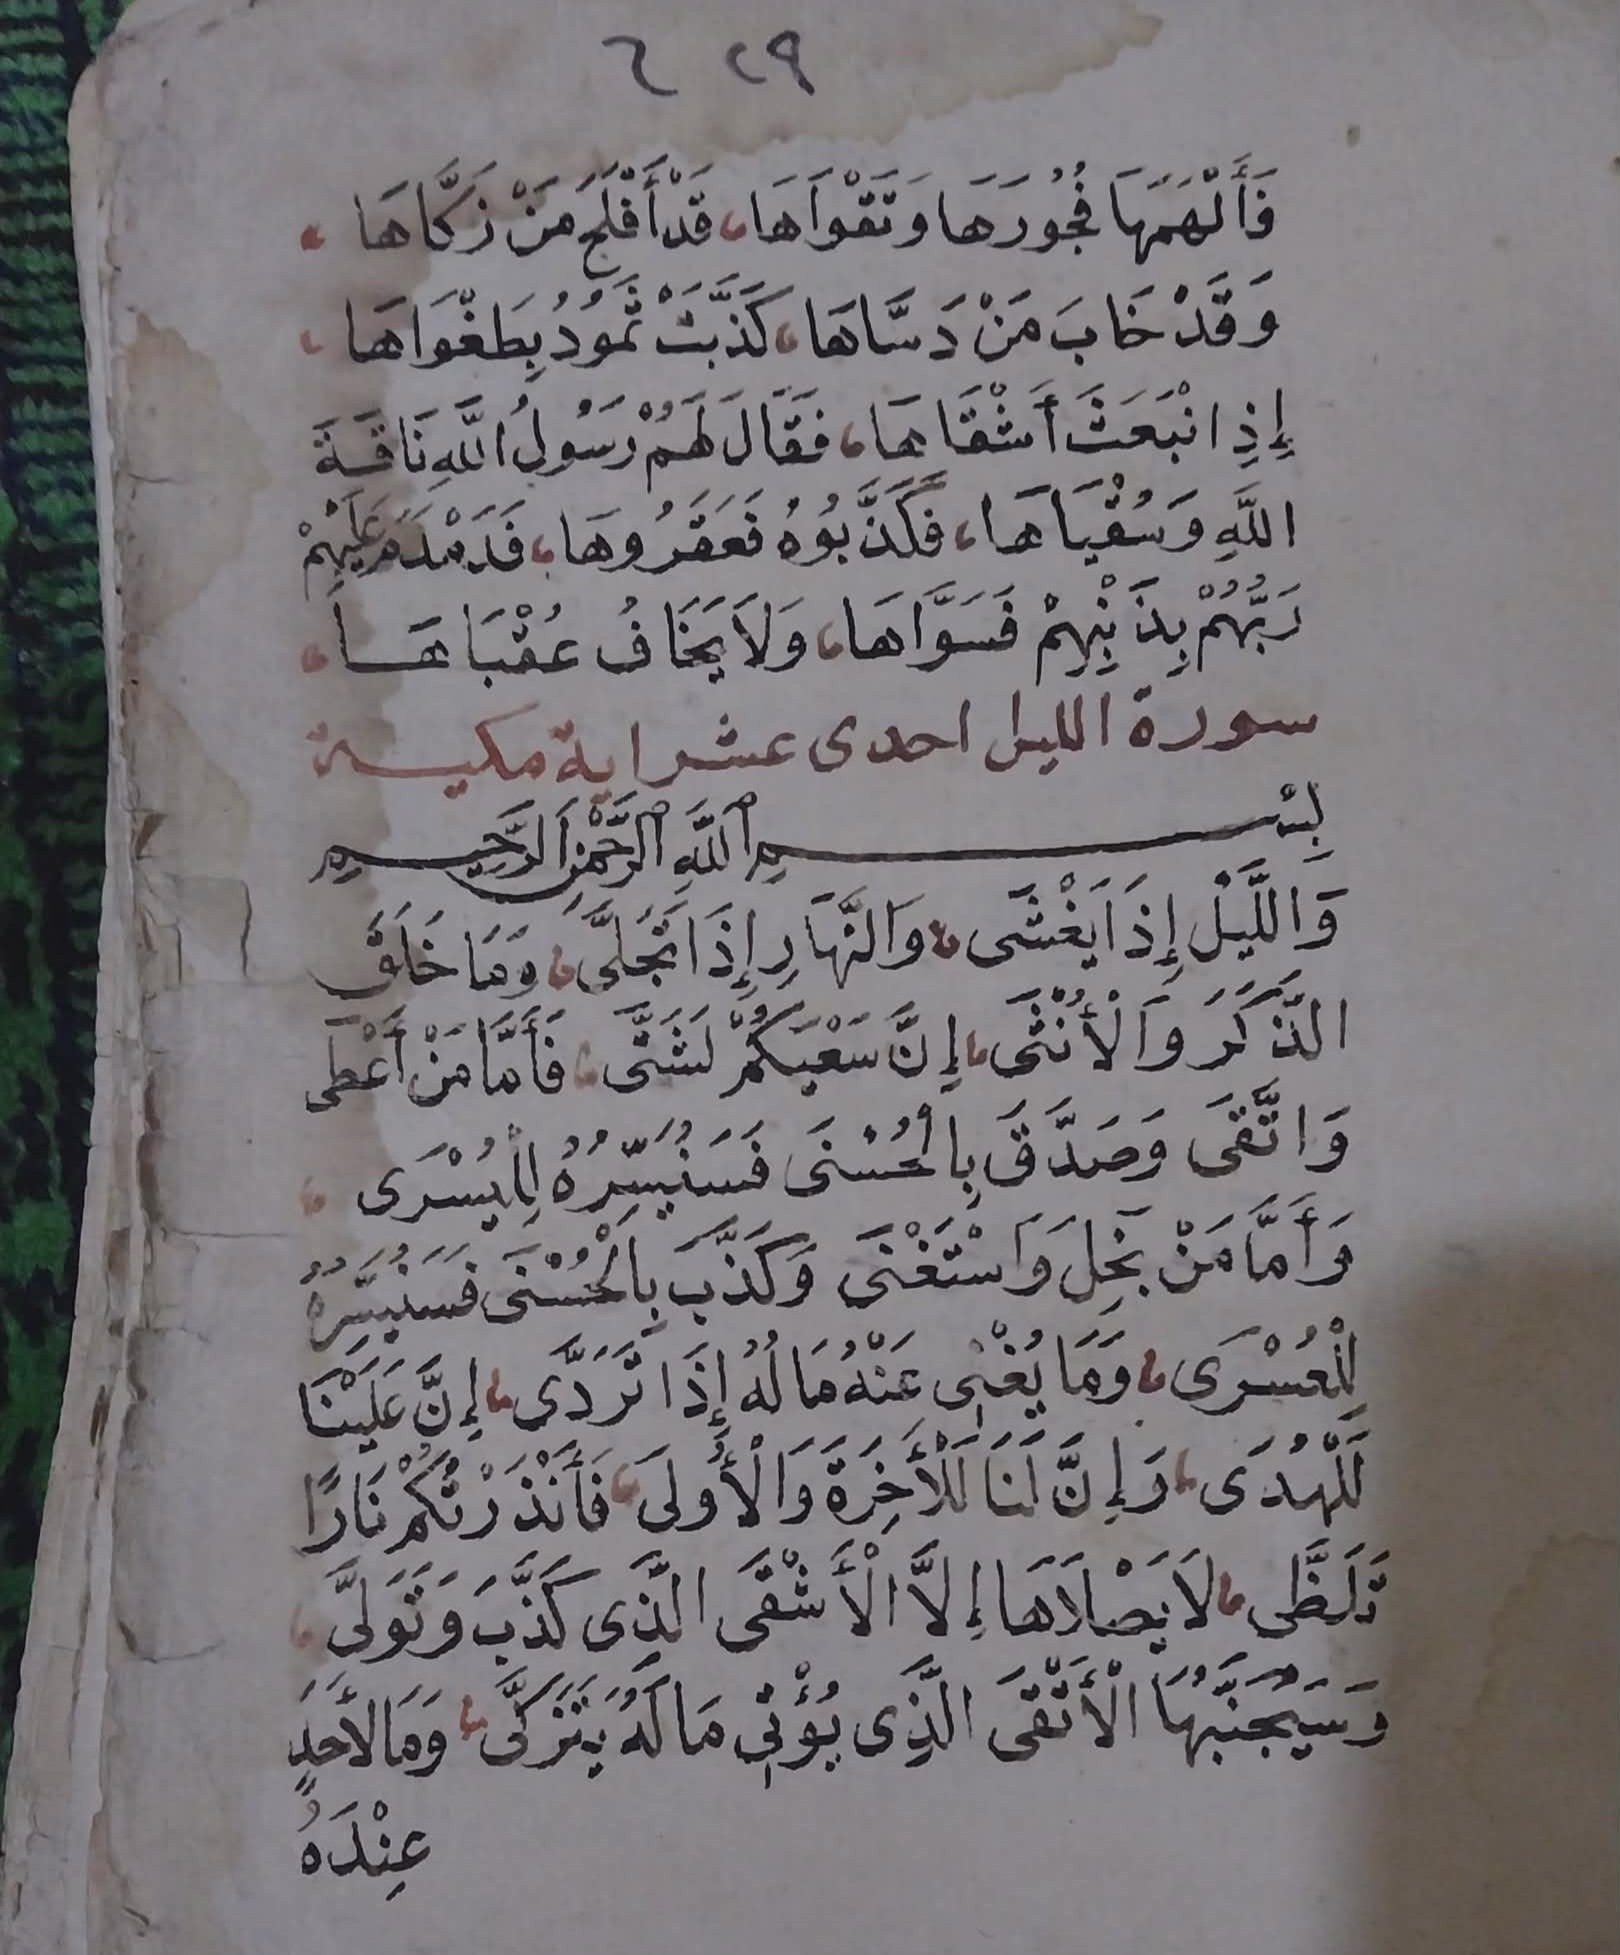 ٢٩ ٦
فَأَلْهَمَهَا فُجُورَهَا وَتَقْوَاهَا، قَدْ أَفْلَحَ مَنْ زَكَّاهَا،
وَقَدْ خَابَ مَنْ دَسَّاهَا، كَذَّبَتْ ثَمُودُ بِطَغْوَاهَا،
إِذِ انْبَعَثَ أَشْقَاهَا، فَقَالَ لَهُمْ رَسُولُ اللَّهِ نَاقَةَ
اللَّهِ وَسُقْيَاهَا، فَكَذَّبُوهُ فَعَقَرُوهَا، فَدَمْدَمَ عَلَيْهِمْ
رَبُّهُمْ بِذَنْبِهِمْ فَسَوَّاهَا، وَلَا يَخَافُ عُقْبَاهَا،
سورة الليل احدى عشر اية مكية
بِسْمِ اللَّهِ الرَّحْمَنِ الرَّحِيمِ
وَاللَّيْلِ إِذَا يَغْشَى، وَالنَّهَارِ إِذَا تَجَلَّى، وَمَا خَلَقَ
الذَّكَرَ وَالْأُنْثَى، إِنَّ سَعْيَكُمْ لَشَتَّى، فَأَمَّا مَنْ أَعْطَى
وَاتَّقَى وَصَدَّقَ بِالْحُسْنَى فَسَنُيَسِّرُهُ لِلْيُسْرَى،
وَأَمَّا مَنْ بَخِلَ وَاسْتَغْنَى وَكَذَّبَ بِالْحُسْنَى فَسَنُيَسِّرُهُ
لِلْعُسْرَى، وَمَا يُغْنِي عَنْهُ مَالُهُ إِذَا تَرَدَّى، إِنَّ عَلَيْنَا
لَلْهُدَى، وَإِنَّ لَنَا لَلْأَخِرَةَ وَالْأُولَى، فَأَنْذَرْتُكُمْ نَارًا
تَلَظَّى، لَا يَصْلَاهَا إِلَّا الْأَشْقَى الَّذِي كَذَّبَ وَتَوَلَّى،
وَسَيُجَنَّبُهَا الْأَتْقَى الَّذِي يُؤْتِي مَالَهُ يَتَزَكَّى، وَمَا لِأَحَدٍ
عِنْدَهُ